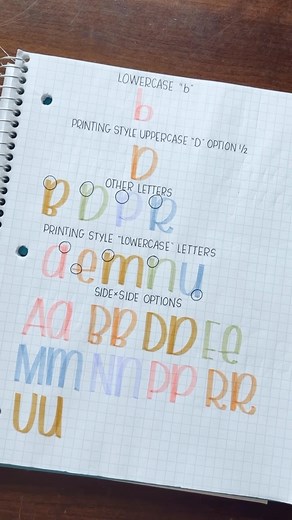 LOWERCASE "b"
b
PRINTING STYLE UPPERCASE "D" OPTION 1/2
D
OTHER LETTERS
B D P R
PRINTING STYLE "LOWERCASE" LETTERS
a e m n u
SIDE×SIDE OPTIONS
Aa BB DD Ee
Mm Nn PP RR
UU